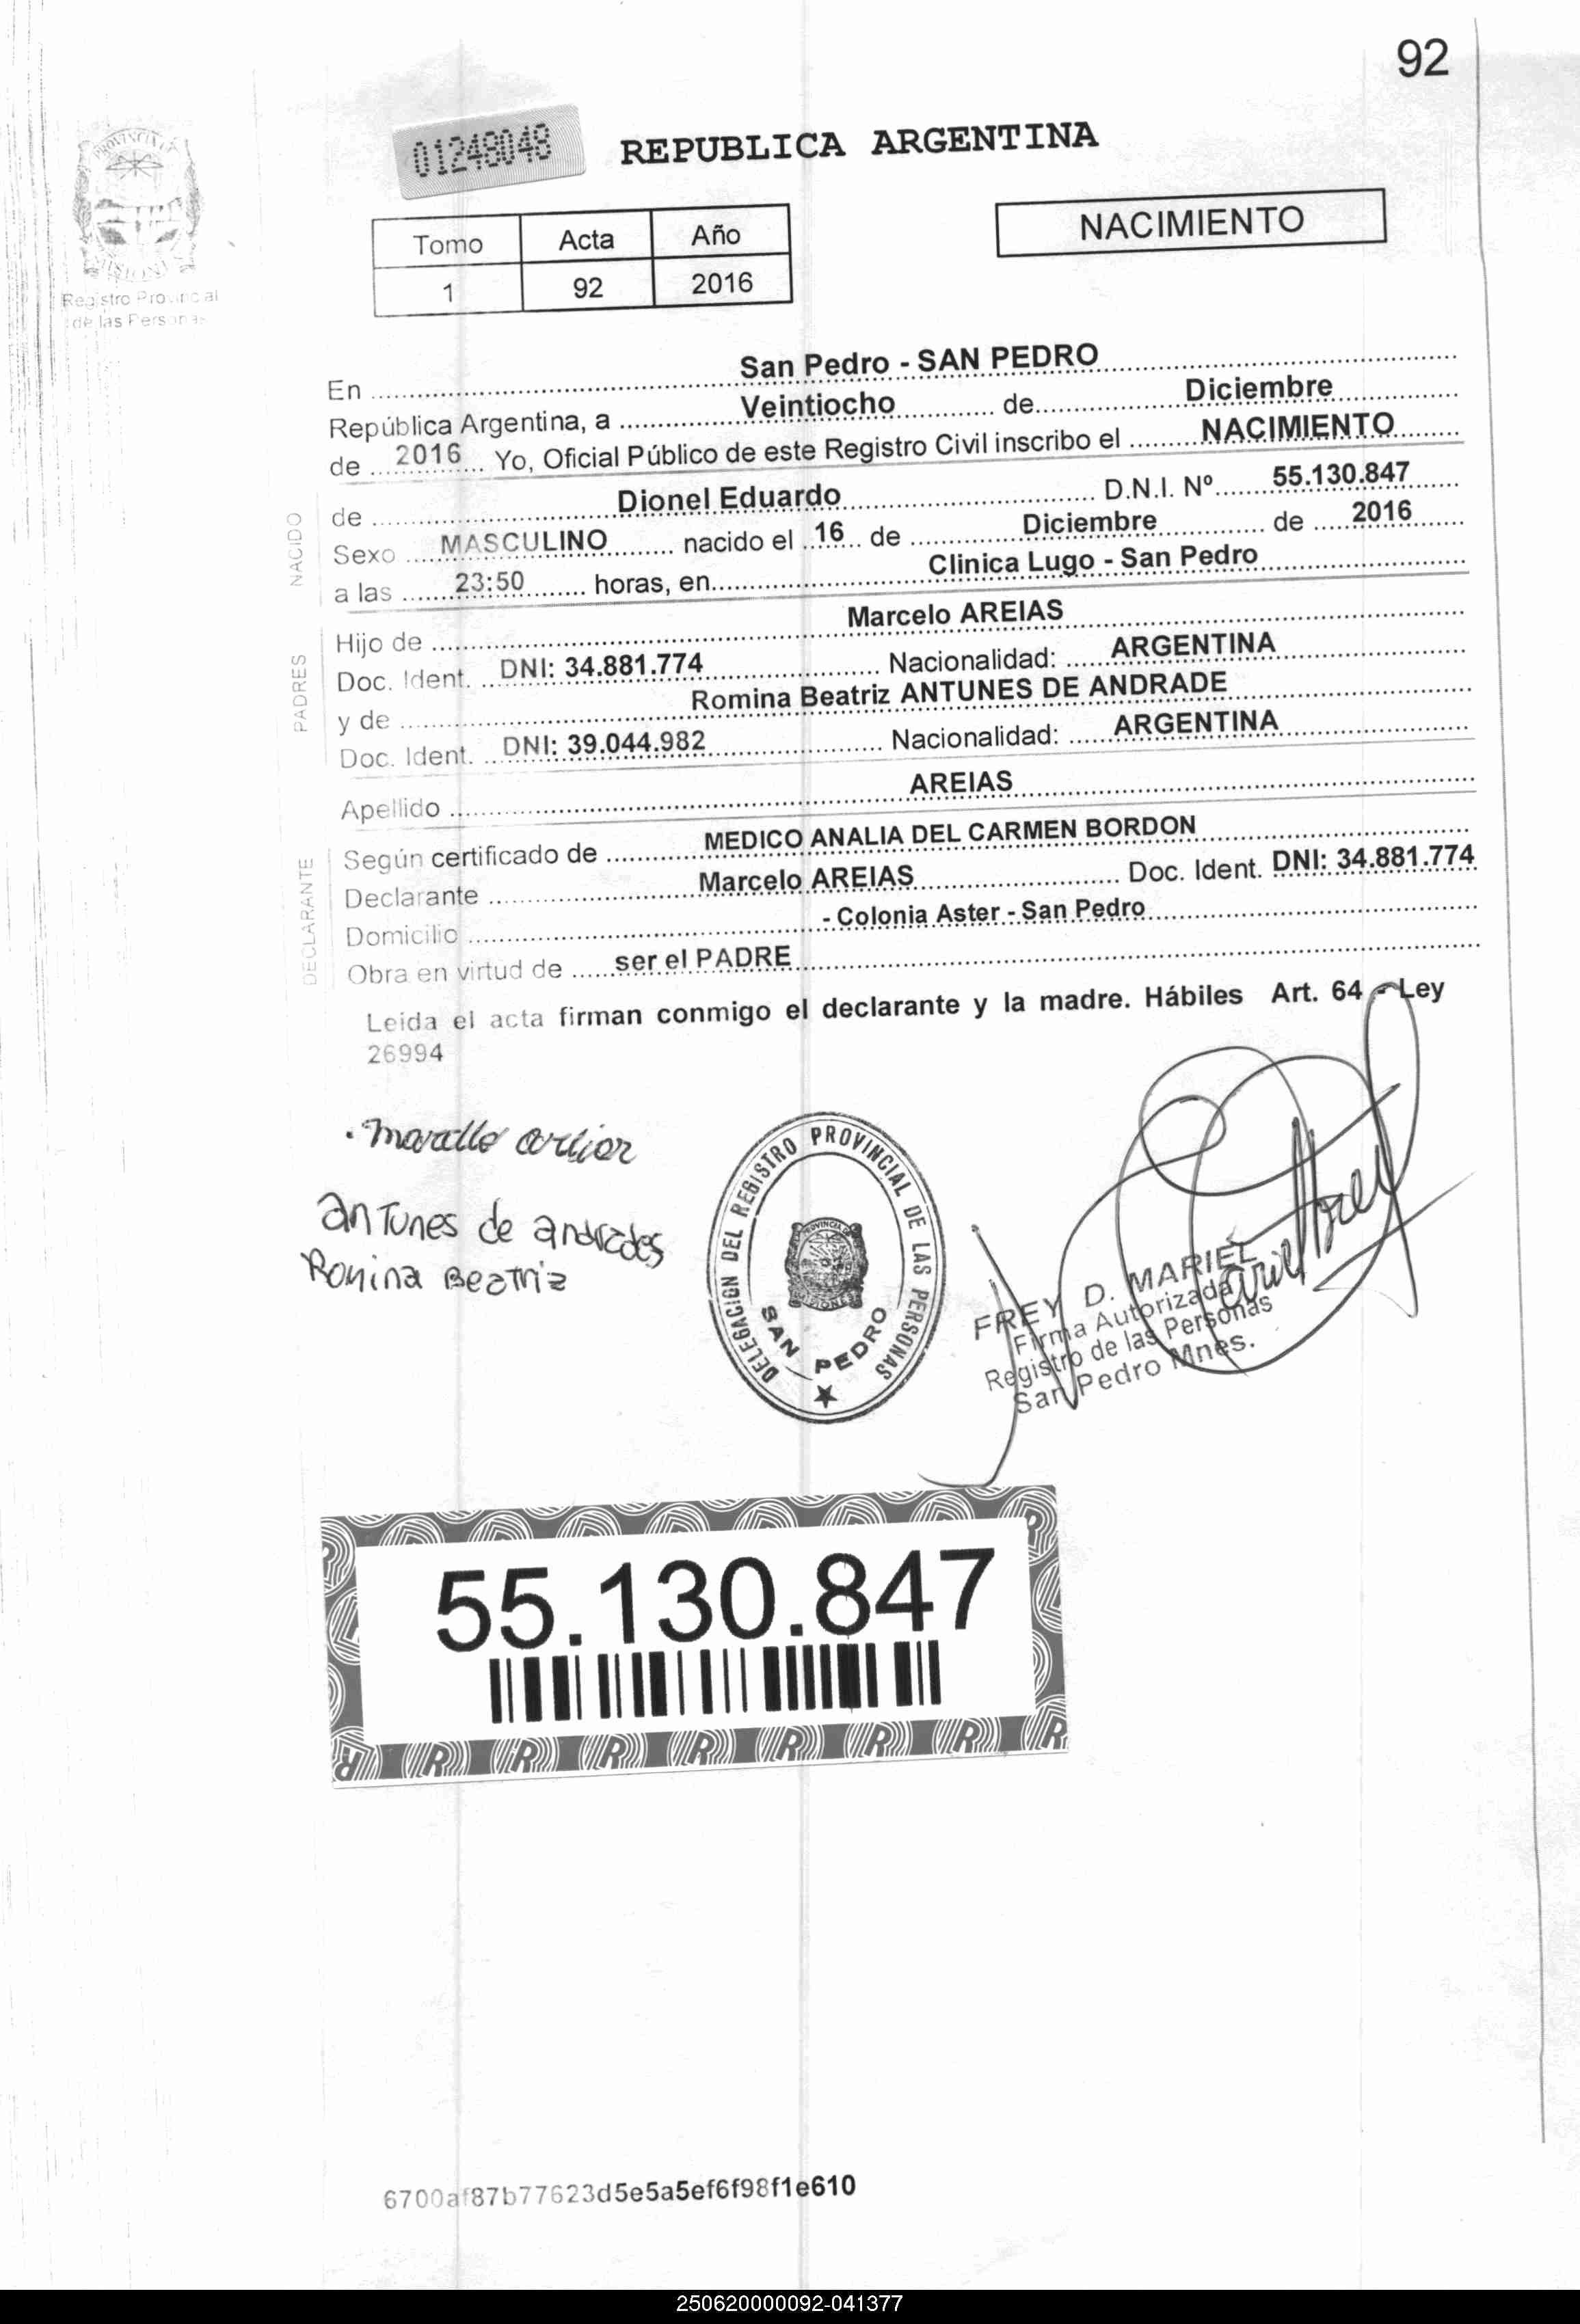 92
01248048
REPUBLICA ARGENTINA
Registro Provincial
de las Personas
Tomo Acta Año
1 92 2016
NACIMIENTO
En San Pedro - SAN PEDRO
República Argentina, a Veintiocho de Diciembre
de 2016 Yo, Oficial Público de este Registro Civil inscribo el NACIMIENTO
NACIDO
de Dionel Eduardo D.N.I. Nº 55.130.847
Sexo MASCULINO nacido el 16 de Diciembre de 2016
a las 23:50 horas, en Clinica Lugo - San Pedro
PADRES
Hijo de Marcelo AREIAS
Doc. Ident. DNI: 34.881.774 Nacionalidad: ARGENTINA
y de Romina Beatriz ANTUNES DE ANDRADE
Doc. Ident. DNI: 39.044.982 Nacionalidad: ARGENTINA
Apellido AREIAS
DECLARANTE
Según certificado de MEDICO ANALIA DEL CARMEN BORDON
Declarante Marcelo AREIAS Doc. Ident. DNI: 34.881.774
Domicilio - Colonia Aster - San Pedro
Obra en virtud de ser el PADRE
Leida el acta firman conmigo el declarante y la madre. Hábiles Art. 64 - Ley
26994
antunes de andrades
Romina Beatriz
DELEGACION DEL REGISTRO PROVINCIAL DE LAS PERSONAS
SAN PEDRO
FREY D. MARIEL
Firma Autorizada
Registro de las Personas
San Pedro Mnes.
55.130.847
6700af87b77623d5e5a5ef6f98f1e610
250620000092-041377